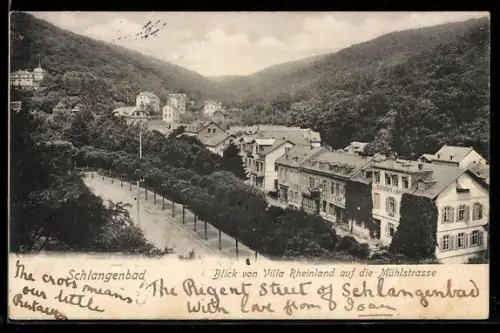 Schlangenbad
Blick von Villa Rheinland auf die Mühlstrasse
The crots means
our little
The Regent Street of Schlangenbad
With love from